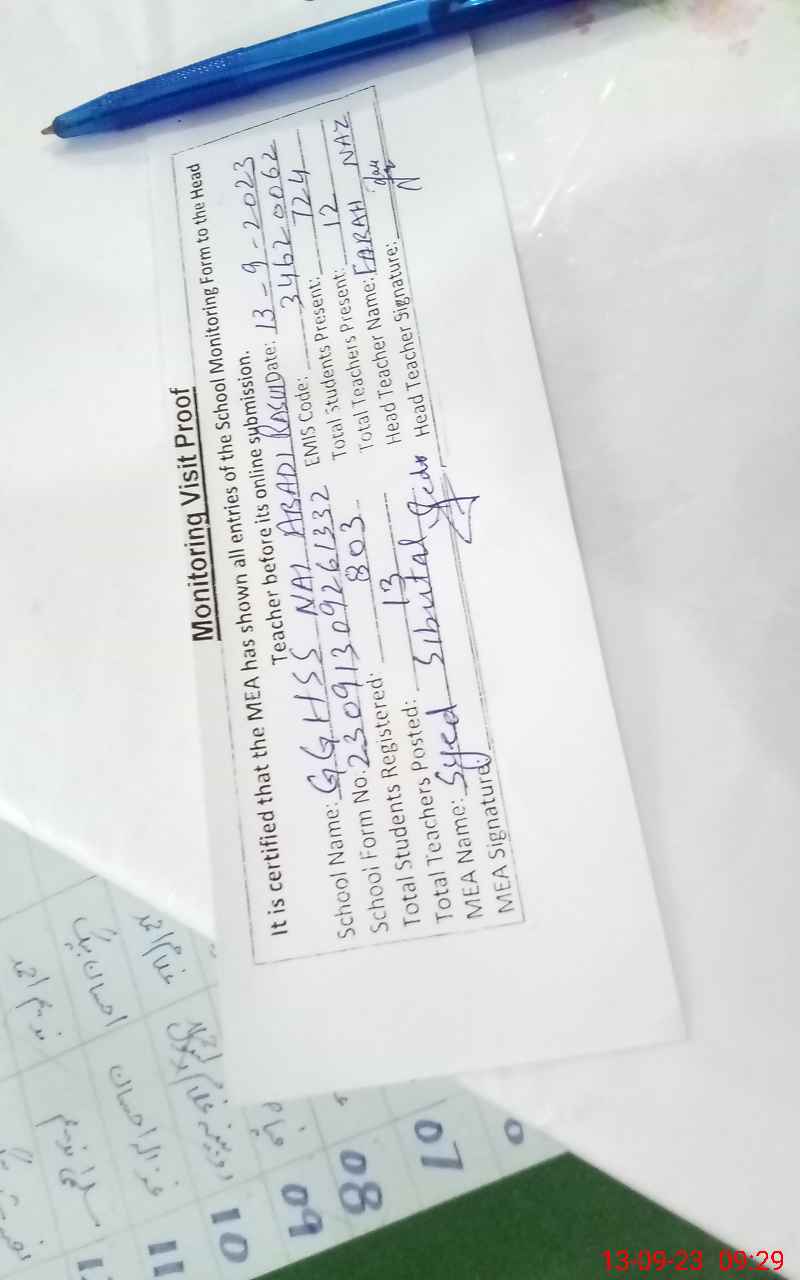 Monitoring Visit Proof
It is certified that the MEA has shown all entries of the School Monitoring Form to the Head
Teacher before its online submission.
School Name: GGHSS NAI ABADI RASUL Date: 13-9-2023
School Form No: 23091309261332 EMIS Code: 34620062
Total Students Registered: 803 Total Students Present: 724
Total Teachers Posted: 13 Total Teachers Present: 12
MEA Name: Syed Sibutal Head Teacher Name: FARAH NAZ
MEA Signature: Head Teacher Signature:
07
08
09
10
11
غلام احمد
احسان بیگ
13-09-23 09:29